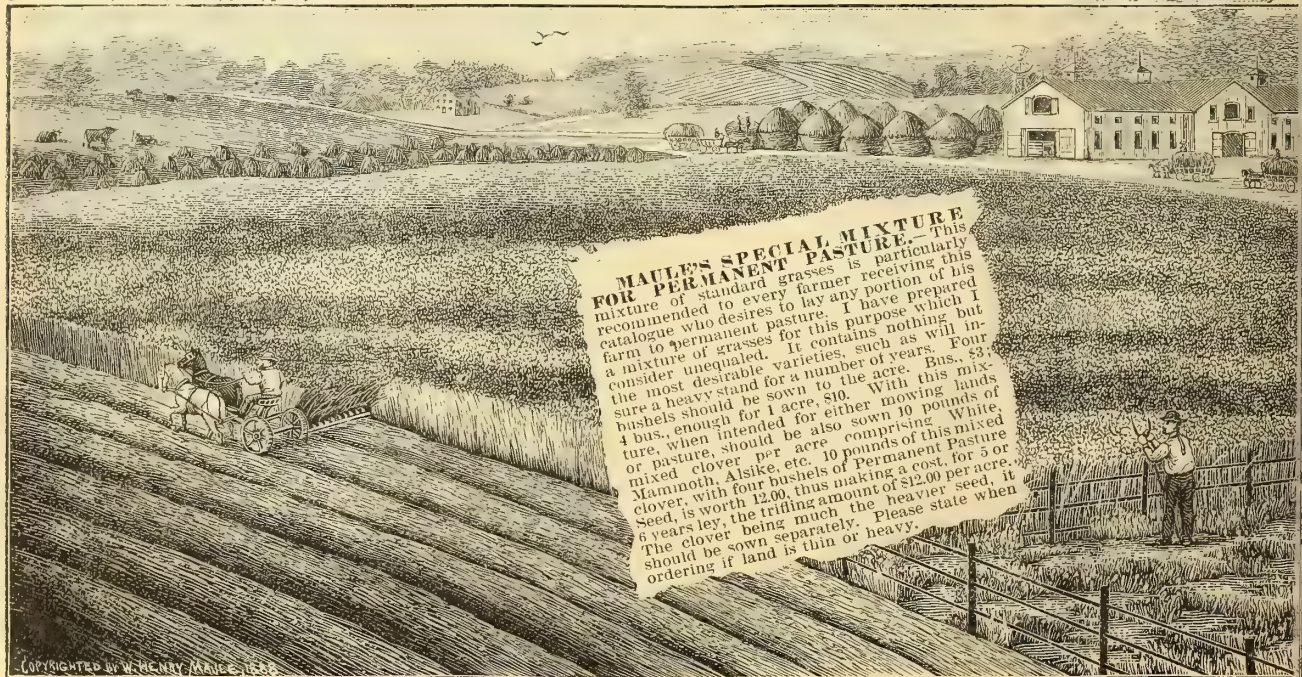 MAULE'S SPECIAL MIXTURE
FOR PERMANENT PASTURE.—This
mixture of standard grasses is particularly
recommended to every farmer receiving this
catalogue who desires to lay any portion of his
farm to permanent pasture. I have prepared
a mixture of grasses for this purpose which I
consider unequaled. It contains nothing but
the most desirable varieties, such as will in-
sure a heavy stand for a number of years. Four
bushels should be sown to the acre. Bus., $3;
4 bus., enough for 1 acre, $10. With this mix-
ture, when intended for either mowing lands
or pasture, should be also sown 10 pounds of
mixed clover per acre comprising White,
Mammoth, Alsike, etc. 10 pounds of this mixed
clover, with four bushels of Permanent Pasture
Seed, is worth 12.00, thus making a cost, for 5 or
6 years ley, the trifling amount of $12.00 per acre.
The clover being much the heavier seed, it
should be sown separately. Please state when
ordering if land is thin or heavy.
COPYRIGHTED BY W. HENRY MAULE, 1888